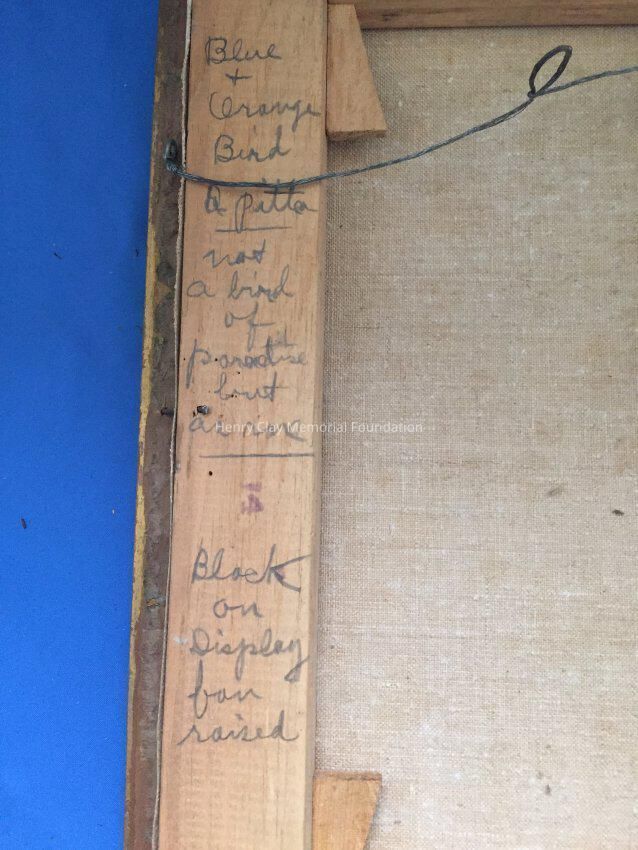 Blue
+
Orange
Bird
A pitta
not
a bird
of
paradise
but
as nice
Henry Clay Memorial Foundation
14
Black
on
Display
fan
raised